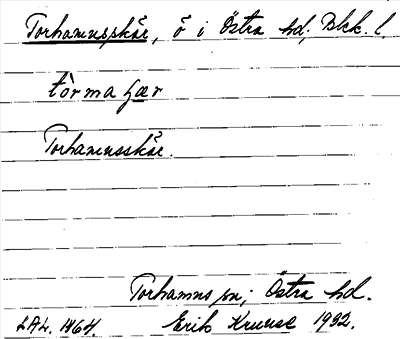 Torhamnsskär, ö i Östra hd, Blek. l.
Torhamnsskär.
Torhamns sn; Östra hd.
LAL. 1464. Erik Kruuse 1932.